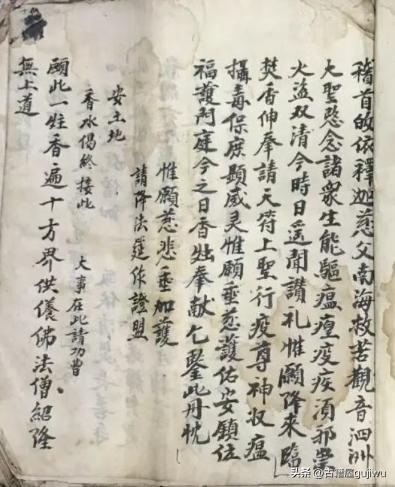 稽首皈依釋迦慈父南海救苦觀音泗州
大聖愍念諸衆生能驅瘟疫疾須邪
火盜双清今時日遥聞讃礼惟願降來臨
焚香伸奉請天符上聖行疫尊神收瘟
攝毒保顯威灵惟願垂慈護佑安鎮位
福護門庭今之日香奉献乞鑒此丹忱
惟願慈悲垂加護
請降法筵作證盟
安土地
香水偈終接此 大事在此請功曹
願此一炷香遍十方界供儀佛法僧紹隆
無上道
头条 @古籍屋gujiwu